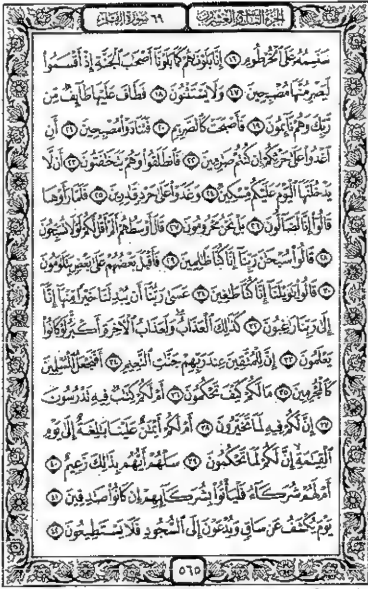 الجزء التاسع والعشرين
٦٩ سورة القلم
سَنَسِمُهُ عَلَى الْخُرْطُومِ ۝١٦ إِنَّا بَلَوْنَاهُمْ كَمَا بَلَوْنَا أَصْحَابَ الْجَنَّةِ إِذْ أَقْسَمُوا
لَيَصْرِمُنَّهَا مُصْبِحِينَ ۝١٧ وَلَا يَسْتَثْنُونَ ۝١٨ فَطَافَ عَلَيْهَا طَائِفٌ مِّن
رَّبِّكَ وَهُمْ نَائِمُونَ ۝١٩ فَأَصْبَحَتْ كَالصَّرِيمِ ۝٢٠ فَتَنَادَوْا مُصْبِحِينَ ۝٢١ أَنِ
اغْدُوا عَلَى حَرْثِكُمْ إِن كُنتُمْ صَارِمِينَ ۝٢٢ فَانطَلَقُوا وَهُمْ يَتَخَافَتُونَ ۝٢٣ أَن لَّا
يَدْخُلَنَّهَا الْيَوْمَ عَلَيْكُم مِّسْكِينٌ ۝٢٤ وَغَدَوْا عَلَى حَرْدٍ قَادِرِينَ ۝٢٥ فَلَمَّا رَأَوْهَا
قَالُوا إِنَّا لَضَالُّونَ ۝٢٦ بَلْ نَحْنُ مَحْرُومُونَ ۝٢٧ قَالَ أَوْسَطُهُمْ أَلَمْ أَقُل لَّكُمْ لَوْلَا تُسَبِّحُونَ
۝٢٨ قَالُوا سُبْحَانَ رَبِّنَا إِنَّا كُنَّا ظَالِمِينَ ۝٢٩ فَأَقْبَلَ بَعْضُهُمْ عَلَى بَعْضٍ يَتَلَاوَمُونَ
۝٣٠ قَالُوا يَا وَيْلَنَا إِنَّا كُنَّا طَاغِينَ ۝٣١ عَسَى رَبُّنَا أَن يُبْدِلَنَا خَيْرًا مِّنْهَا إِنَّا
إِلَى رَبِّنَا رَاغِبُونَ ۝٣٢ كَذَلِكَ الْعَذَابُ وَلَعَذَابُ الْآخِرَةِ أَكْبَرُ لَوْ كَانُوا
يَعْلَمُونَ ۝٣٣ إِنَّ لِلْمُتَّقِينَ عِندَ رَبِّهِمْ جَنَّاتِ النَّعِيمِ ۝٣٤ أَفَنَجْعَلُ الْمُسْلِمِينَ
كَالْمُجْرِمِينَ ۝٣٥ مَا لَكُمْ كَيْفَ تَحْكُمُونَ ۝٣٦ أَمْ لَكُمْ كِتَابٌ فِيهِ تَدْرُسُونَ
۝٣٧ إِنَّ لَكُمْ فِيهِ لَمَا تَخَيَّرُونَ ۝٣٨ أَمْ لَكُمْ أَيْمَانٌ عَلَيْنَا بَالِغَةٌ إِلَى يَوْمِ
الْقِيَامَةِ إِنَّ لَكُمْ لَمَا تَحْكُمُونَ ۝٣٩ سَلْهُمْ أَيُّهُم بِذَلِكَ زَعِيمٌ ۝٤٠
أَمْ لَهُمْ شُرَكَاءُ فَلْيَأْتُوا بِشُرَكَائِهِمْ إِن كَانُوا صَادِقِينَ ۝٤١
يَوْمَ يُكْشَفُ عَن سَاقٍ وَيُدْعَوْنَ إِلَى السُّجُودِ فَلَا يَسْتَطِيعُونَ ۝٤٢
٥٦٥